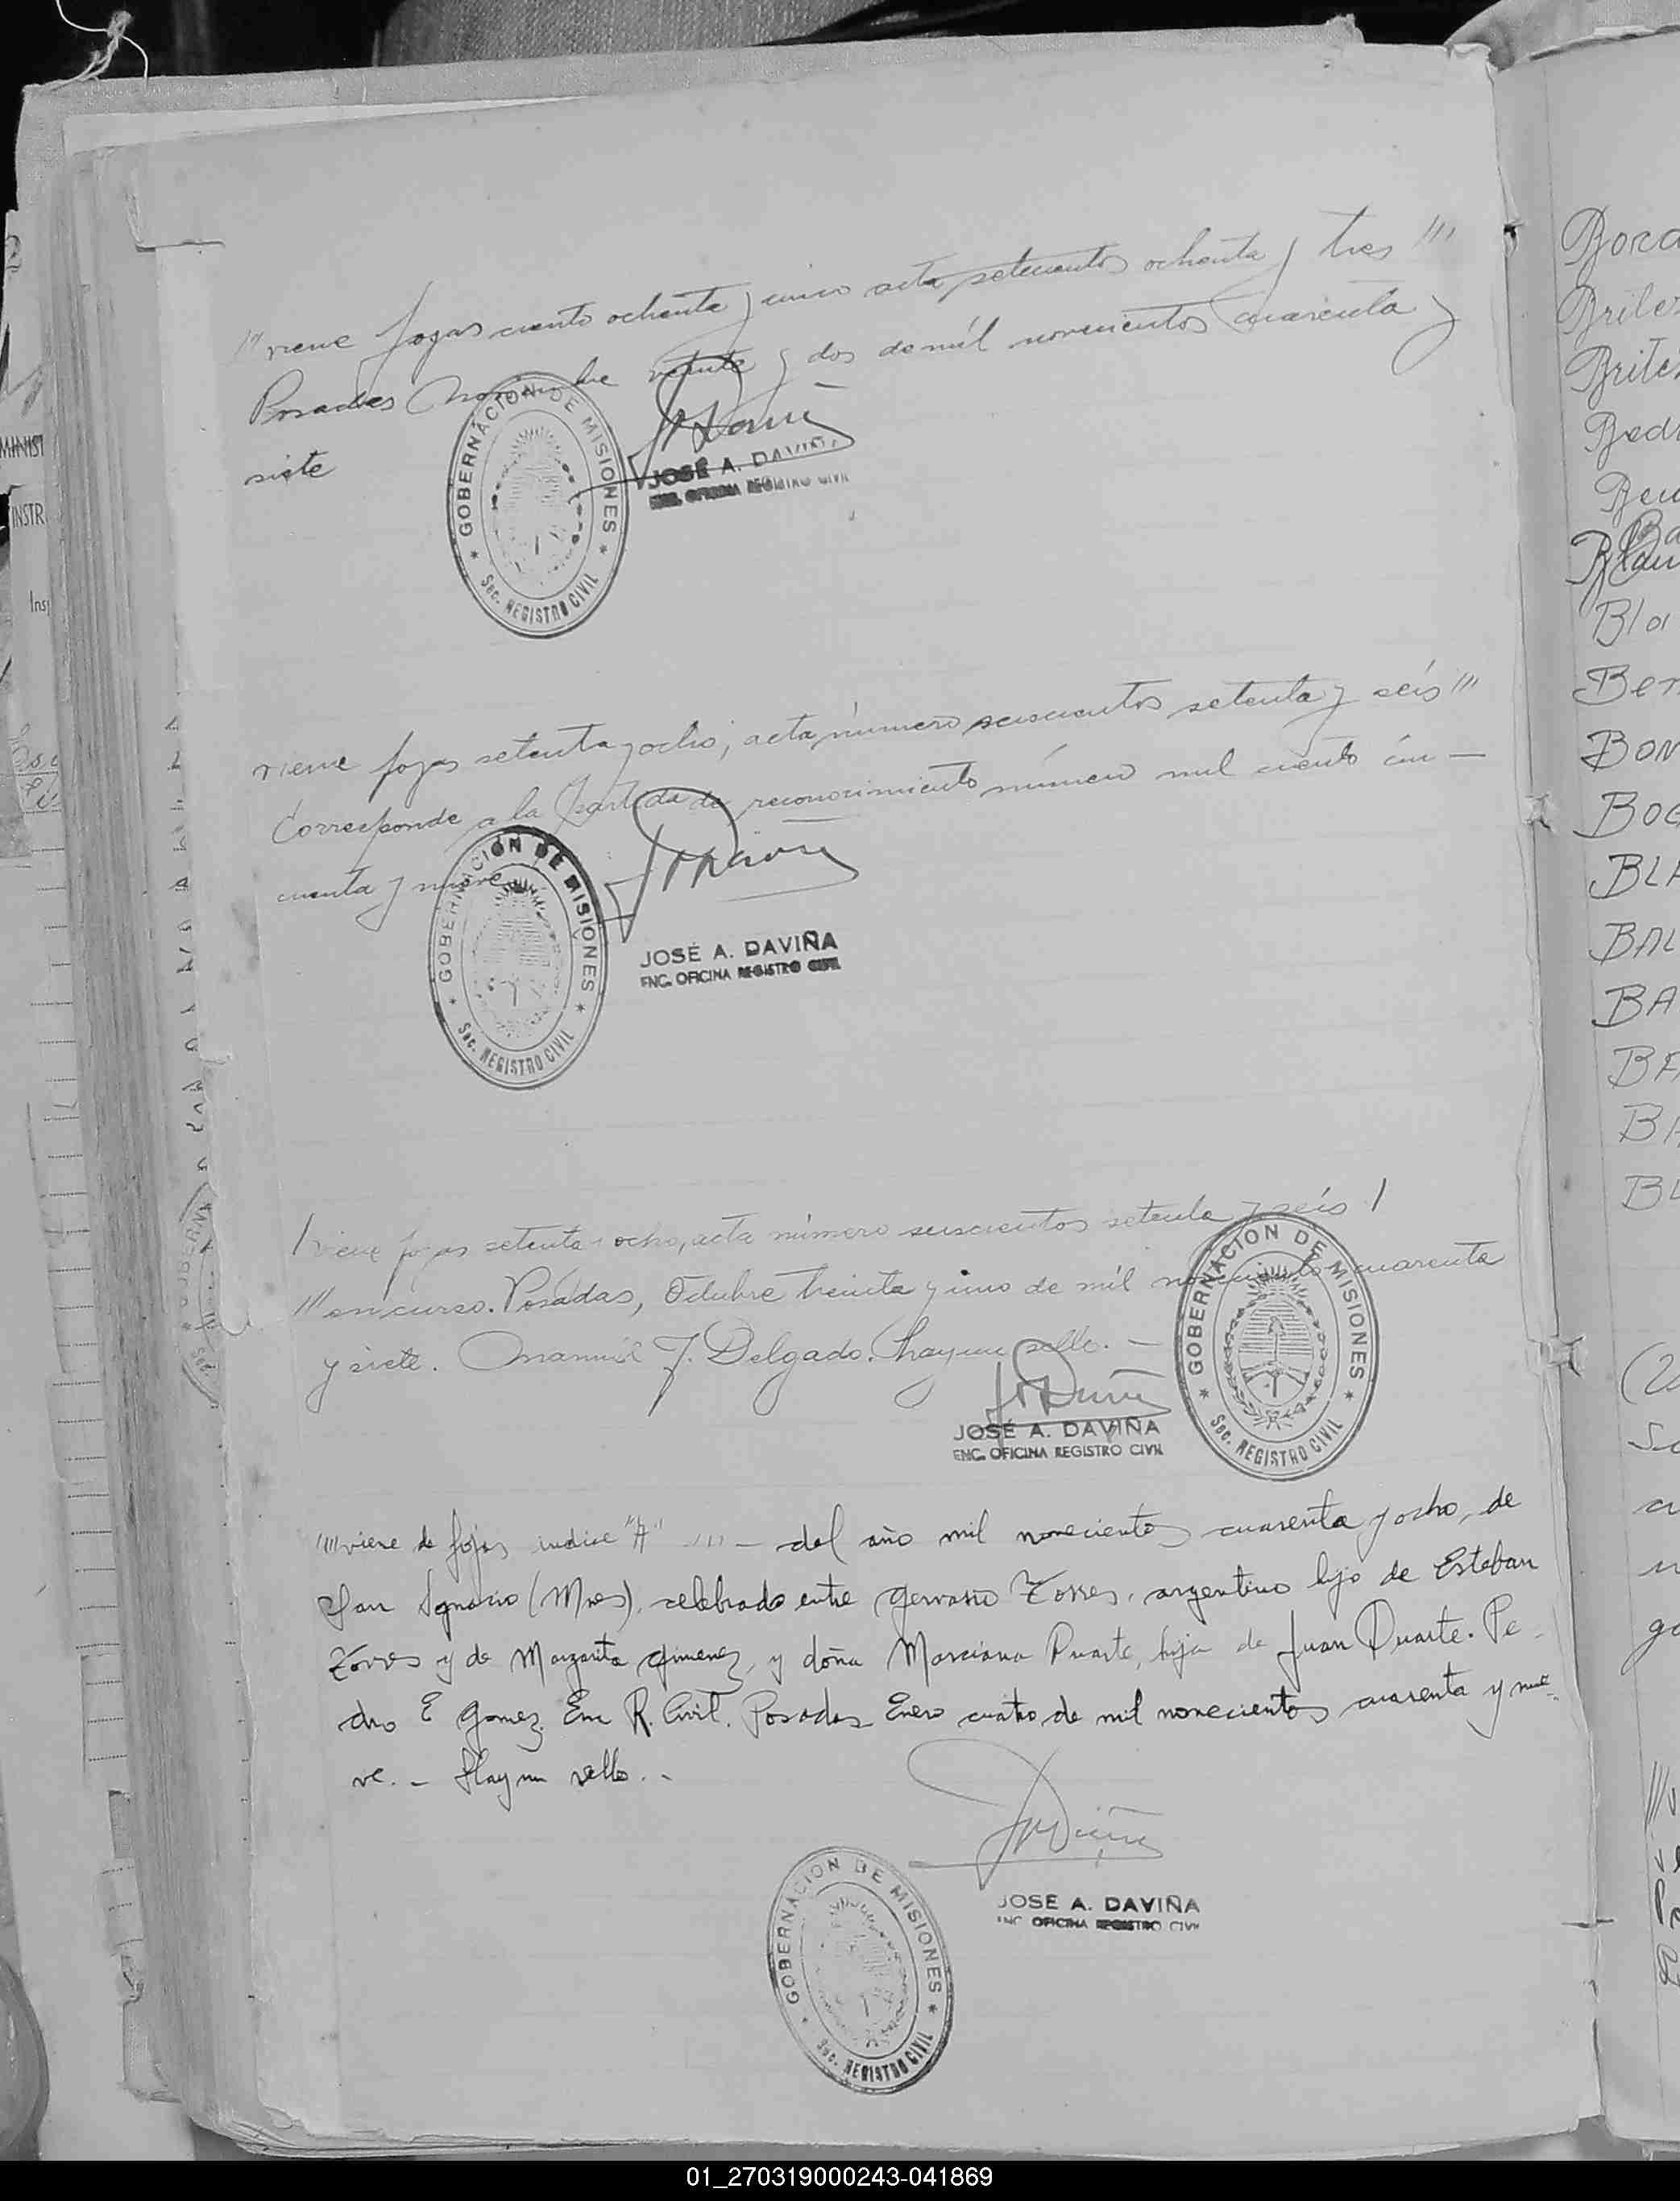 "' viene fojas ciento ochenta y cinco acta setecientos ochenta y tres "'
Posadas Noviembre veinte y dos de mil novecientos cuarenta y
siete
GOBERNACION DE MISIONES
Sec. REGISTRO CIVIL
JOSÉ A. DAVIÑA
ENC. OFICINA REGISTRO CIVIL
viene fojas setenta y ocho, acta número seiscientos setenta y seis "'
Corresponde a la partida de reconocimiento número mil ciento cin —
cuenta y nueve
GOBERNACION DE MISIONES
Sec. REGISTRO CIVIL
JOSÉ A. DAVIÑA
ENC. OFICINA REGISTRO CIVIL
/ viene fojas setenta y ocho, acta número seiscientos setenta y seis /
"' en curso. Posadas, Octubre treinta y uno de mil novecientos cuarenta
y siete. Manuel J. Delgado. hay un sello. —
GOBERNACION DE MISIONES
Sec. REGISTRO CIVIL
JOSÉ A. DAVIÑA
ENC. OFICINA REGISTRO CIVIL
""viene de fojas indice "A" "' — del año mil novecientos cuarenta y ocho, de
San Ignacio (Mnes), celebrado entre Gervasio Torres, argentino hijo de Esteban
Torres y de Margarita Gimenez, y doña Marciana Duarte, hija de Juan Duarte. Pe-
dro E Gomez. Enc R. Civil. Posadas Enero cuatro de mil novecientos cuarenta y nue-
ve. — Hay un sello. -
JOSE A. DAVIÑA
ENC OFICINA REGISTRO CIVIL
GOBERNACION DE MISIONES
Sec. REGISTRO CIVIL
MINIST
INSTR
BON
BLA
BAL
BA
01_270319000243-041869